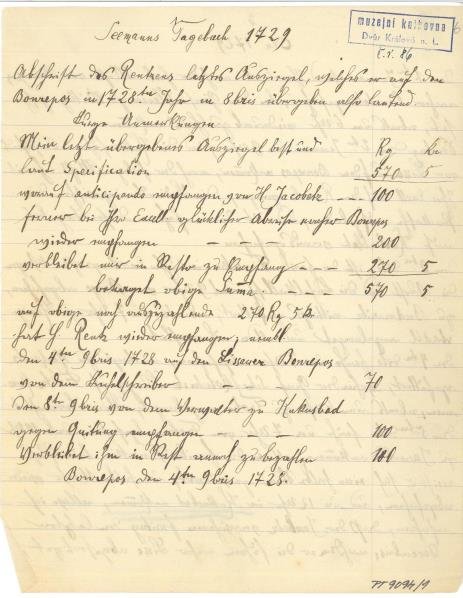 Seemanns Tagebuch 1729
muzejní knihovna
Dvůr Králové n. L.
Abschrift des Rentzens letztes Ausziegel, welches er auf den
Bonrepos in 1728ten Jahr in 8bris übergeben also lautend
kurze Anmerkungen
Mein letzt übergebenes Ausziegel bestund Rg Kr
laut Specification 570 5
worauf anticipando empfangen von H. Jacobek --- 100
ferner bei Ihro Excell. glücklicher Abreise naher Bonrepos
wieder empfangen --- 200
verbleibet mir in Resto zu Empfang --- 270 5
betraget obige Suma --- 570 5
auf obige noch auszuzahlende 270 Rg 5 Kr
hat H Rentz wieder empfangen, neml.
den 4ten 9bris 1728 auf den Lissaer Bonrepos
von dem --- 70
den 8t 9bris von dem Verwalter zu Kukusbad
gegen Quitung empfangen --- 100
Verbleibet ihm in Rest annoch zu bezahlen 100
Bonrepos den 4ten 9bris 1728.
PT 9094/9